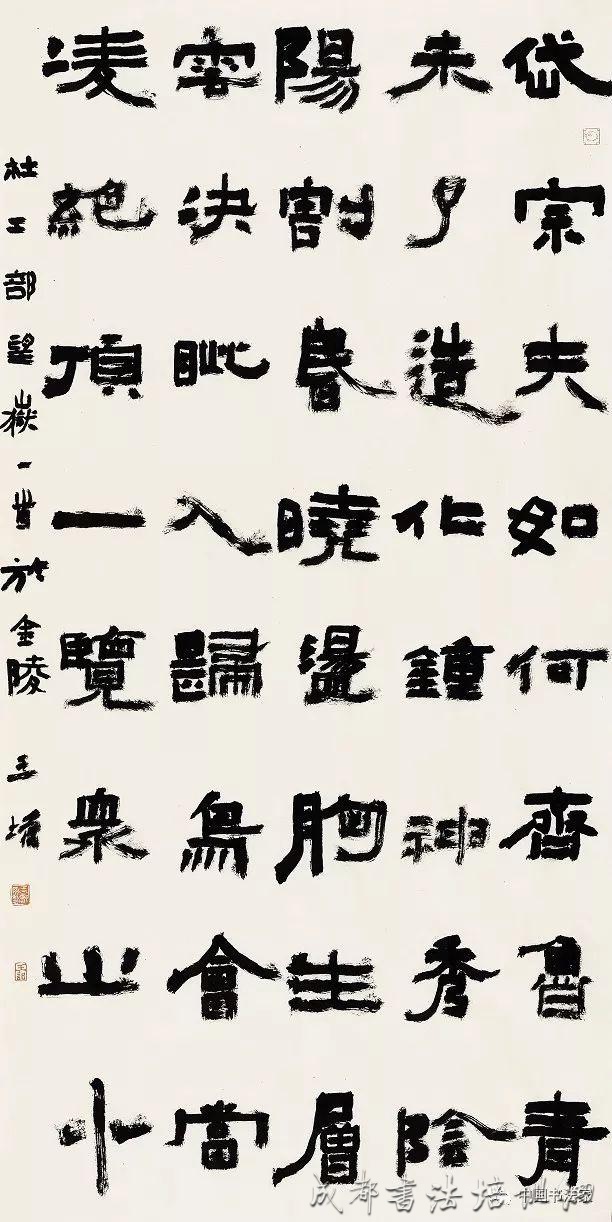 岱宗夫如何齊魯青
未了造化鍾神秀陰
陽割昏曉盪胸生層
雲決眦入歸鳥會當
凌絕頂一覽衆山小
杜工部望嶽一首於金陵 王
成都書法培训
中国书法